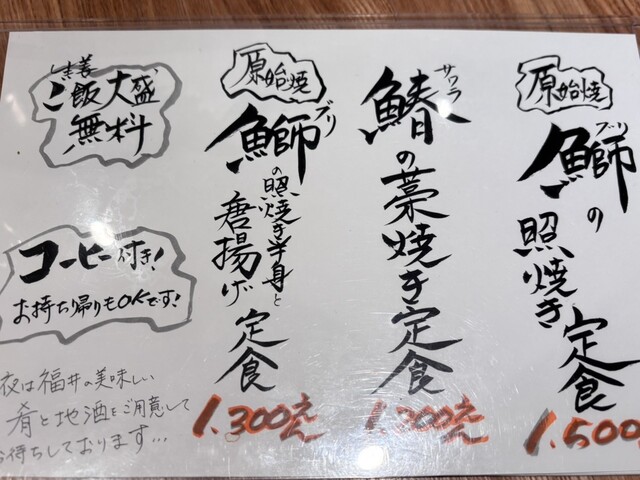 原始焼
ブリ
鰤の
照焼き
定食
1.500
サワラ
鰆の藁焼き定食
1.300えん
原始焼
ブリ
鰤の照焼き半身と
唐揚げ定食
1.300えん
ご飯大盛
無料
コーヒー付き!
お持ち帰りもOKです!
夜は福井の美味しい
肴と地酒をご用意して
お待ちしております…